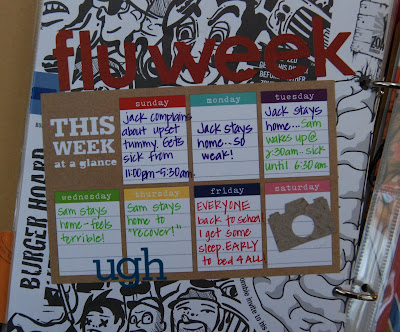 flu week
THIS
WEEK
at a glance
sunday
Jack complains
about upset
tummy. Gets
sick from
11:00pm-5:30am.
monday
Jack stays
home...so
weak!
tuesday
Jack stays
home...Sam
wakes up@
2:30am..sick
until 6:30am
wednesday
Sam stays
home-feels
terrible!
thursday
Sam stays
home to
"recover!"
friday
EVERYONE
back to school
I get some
sleep. EARLY
to bed 4 ALL!
saturday
ugh
BURGER HOARD